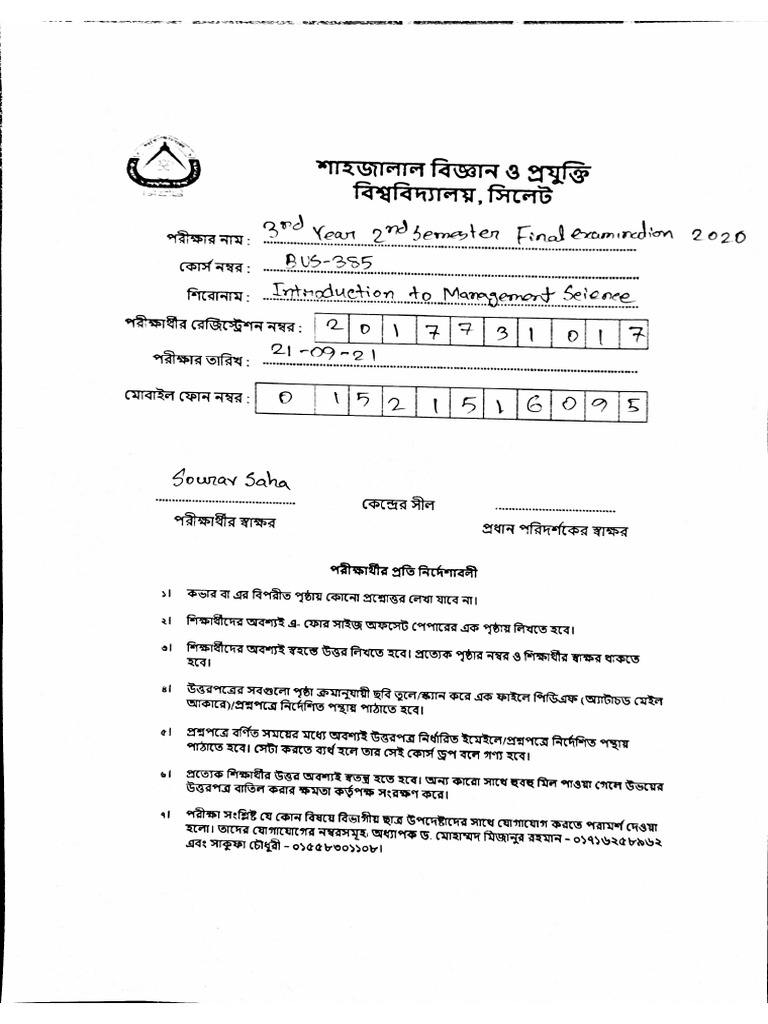 শাহজালাল বিজ্ঞান ও প্রযুক্তি
বিশ্ববিদ্যালয়, সিলেট
পরীক্ষার নাম : 3rd Year 2nd Semester Final examination 2020
কোর্স নম্বর : BUS-385
শিরোনাম : Introduction to Management Science
পরীক্ষার্থীর রেজিস্ট্রেশন নম্বর : 2 0 1 7 7 3 1 0 1 7
পরীক্ষার তারিখ : 21-09-21
মোবাইল ফোন নম্বর : 0 1 5 2 1 5 1 6 0 9 5
Sourav Saha
পরীক্ষার্থীর স্বাক্ষর
কেন্দ্রের সীল
প্রধান পরিদর্শকের স্বাক্ষর
পরীক্ষার্থীর প্রতি নির্দেশাবলী
১। কভার বা এর বিপরীত পৃষ্ঠায় কোনো প্রশ্নোত্তর লেখা যাবে না।
২। শিক্ষার্থীদের অবশ্যই এ- ফোর সাইজ অফসেট পেপারের এক পৃষ্ঠায় লিখতে হবে।
৩। শিক্ষার্থীদের অবশ্যই স্বহস্তে উত্তর লিখতে হবে। প্রত্যেক পৃষ্ঠার নম্বর ও শিক্ষার্থীর স্বাক্ষর থাকতে
হবে।
৪। উত্তরপত্রের সবগুলো পৃষ্ঠা ক্রমানুযায়ী ছবি তুলে/স্ক্যান করে এক ফাইলে পিডিএফ (অ্যাটাচড মেইল
আকারে)/প্রশ্নপত্রে নির্দেশিত পন্থায় পাঠাতে হবে।
৫। প্রশ্নপত্রে বর্ণিত সময়ের মধ্যে অবশ্যই উত্তরপত্র নির্ধারিত ইমেইলে/প্রশ্নপত্রে নির্দেশিত পন্থায়
পাঠাতে হবে। সেটা করতে ব্যর্থ হলে তার সেই কোর্স ড্রপ বলে গণ্য হবে।
৬। প্রত্যেক শিক্ষার্থীর উত্তর অবশ্যই স্বতন্ত্র হতে হবে। অন্য কারো সাথে হুবহু মিল পাওয়া গেলে উভয়ের
উত্তরপত্র বাতিল করার ক্ষমতা কর্তৃপক্ষ সংরক্ষণ করে।
৭। পরীক্ষা সংশ্লিষ্ট যে কোন বিষয়ে বিভাগীয় ছাত্র উপদেষ্টাদের সাথে যোগাযোগ করতে পরামর্শ দেওয়া
হলো। তাদের যোগাযোগের নম্বরসমূহ: অধ্যাপক ড. মোহাম্মদ মিজানুর রহমান – ০১৭১৬২৫৮৯৬২
এবং সাকুফা চৌধুরী – ০১৫৫৮৩০১১০৮।